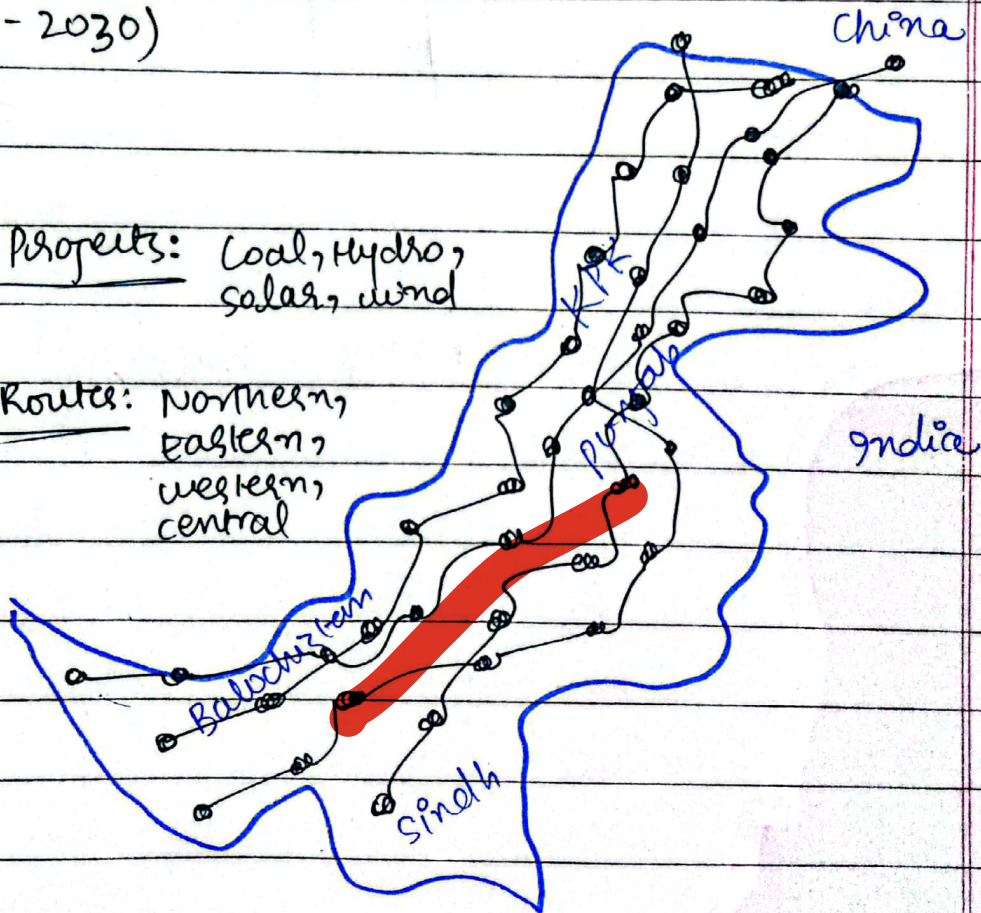 - 2030)
China
Projects: Coal, Hydro,
solar, wind
KPK
Routes: Northern,
Eastern,
western,
central
Punjab
India
Balochistan
Sindh